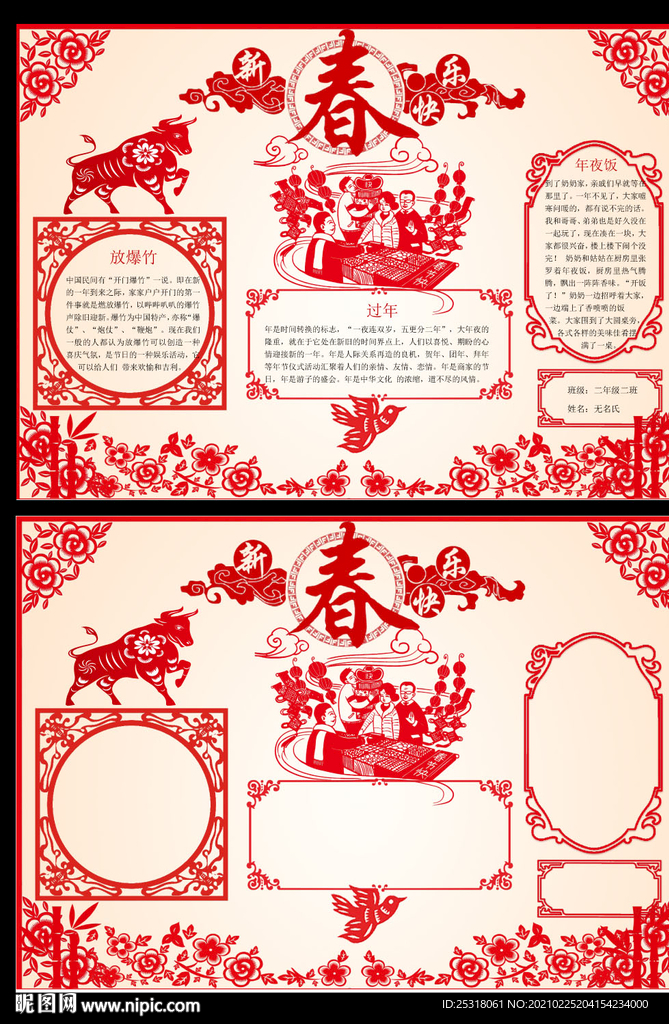 新春快乐
放爆竹
中国民间有“开门爆竹”一说。即在新
的一年到来之际，家家户户开门的第一
件事就是燃放爆竹，以哔哔叭叭的爆竹
声除旧迎新。爆竹为中国特产，亦称“爆
仗”、“炮仗”、“鞭炮”。现在我们
一般的人都认为放爆竹可以创造一种
喜庆气氛，是节日的一种娱乐活动，它
可以给人们 带来欢愉和吉利。
过年
年是时间转换的标志，“一夜连双岁，五更分二年”，大年夜的
隆重，就在于它处在新旧的时间界点上，人们以喜悦、期盼的心
情迎接新的一年。年是人际关系再造的良机，贺年、团年、拜年
等年节仪式活动汇聚着人们的亲情、友情、恋情。年是商家的节
日，年是游子的盛会。年是中华文化 的浓缩，道不尽的风情。
年夜饭
到了奶奶家，亲戚们早就等在
那里了。一年不见了，大家嘘
寒问暖的，都有说不完的话。
我和哥哥、弟弟也是好久没在
一起玩了，现在凑在一块，大
家都很兴奋，楼上楼下闹个没
完！ 奶奶和姑姑在厨房里张
罗着年夜饭，厨房里热气腾
腾，飘出一阵阵香味。“开饭
了！”奶奶一边招呼着大家，
一边端上了香喷喷的饭
菜。大家围到了大圆桌旁，
各式各样的美味佳肴摆
满了一桌。
班级：二年级二班
姓名：无名氏
新春快乐
昵图网 www.nipic.com
ID:25318061 NO:20210225204154234000